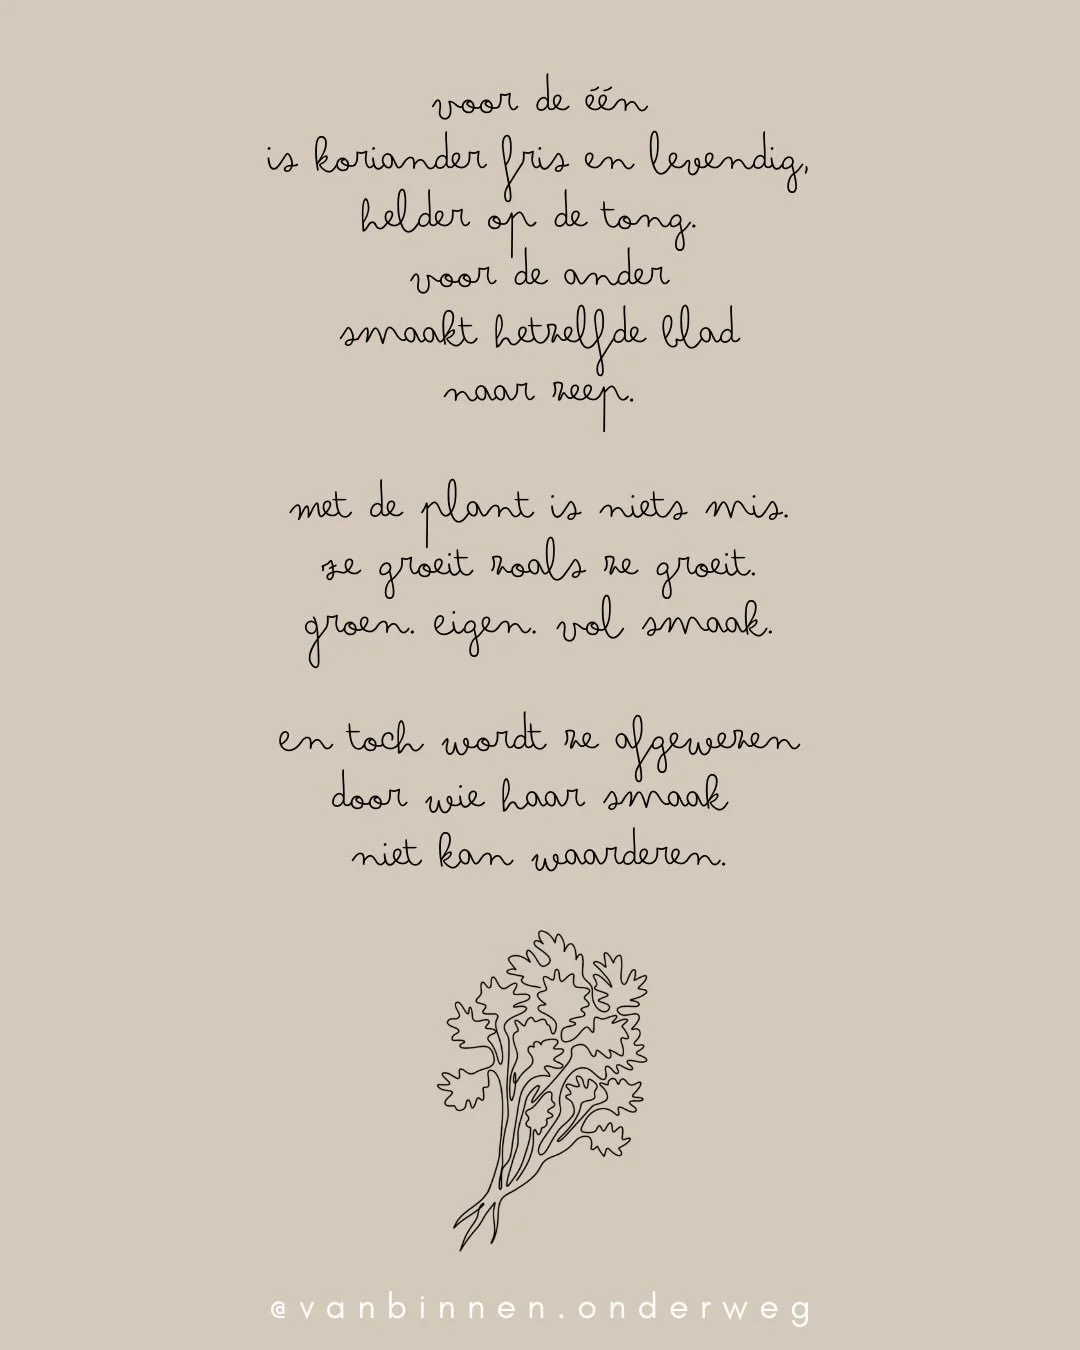 voor de één
is koriander fris en levendig,
helder op de tong.
voor de ander
smaakt hetzelfde blad
naar zeep.
met de plant is niets mis.
ze groeit zoals ze groeit.
groen. eigen. vol smaak.
en toch wordt ze afgewezen
door wie haar smaak
niet kan waarderen.
@vanbinnen.onderweg